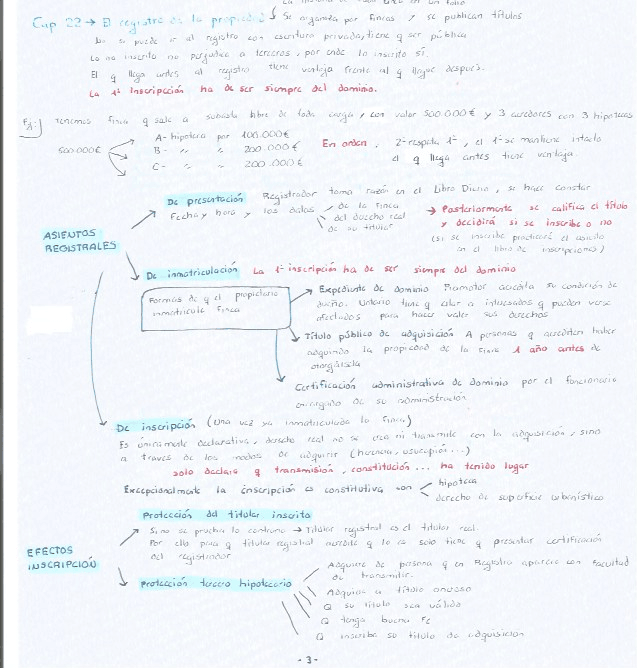 Cap 22 → El registro de la propiedad Se organiza por fincas / se publican títulos
No se puede ir al registro con escritura privada, tiene q ser pública
Lo no inscrito no perjudica a terceros, por ende lo inscrito sí.
El q llega antes al registro tiene ventaja frente al q llegue después.
La 1ª Inscripción ha de ser siempre del dominio.
Ej: Tenemos finca q sale a subasta libre de toda carga, con valor 500.000€ y 3 acreedores con 3 hipotecas
500.000€
A- hipoteca por 100.000€
B- " " 200.000€
C- " " 200.000€
En orden, 2ª respeta 1ª, el 1º se mantiene intacto
el q llega antes tiene ventaja.
ASIENTOS
REGISTRALES
De presentación Registrador toma razón en el Libro Diario, se hace constar
Fecha y hora y los datos
de la finca
del derecho real
de su titular
→ Posteriormente se califica el título
y decidirá si se inscribe o no
(si se inscribe practicará el asiento
en el libro de inscripciones)
De inmatriculación La 1ª inscripción ha de ser siempre del dominio
Formas de q el propietario
inmatricule Finca
Expediente de dominio Promotor acredita su condición de
dueño. Notario tiene q citar a interesados q pueden verse
afectados para hacer valer sus derechos
Título público de adquisición A personas q acrediten haber
adquirido la propiedad de la finca 1 año antes de
otorgársela
Certificación administrativa de dominio por el funcionario
encargado de su administración
De inscripción (Una vez ya inmatriculada la finca)
Es únicamente declarativa, derecho real no se crea ni transmite con la adquisición, sino
a través de los modos de adquirir (herencia, usucapión...)
solo declara q transmisión, constitución... ha tenido lugar
Excepcionalmente la inscripción es constitutiva con
hipoteca
derecho de superficie urbanístico
EFECTOS
INSCRIPCIÓN
Protección del titular inscrito
Si no se prueba lo contrario → Titular registral es el titular real
Por ello para q titular registral acredite q lo es solo tiene q presentar certificación
del registrador
Protección tercero hipotecario
Adquiere de persona q en Registro aparece con facultad
de transmitir.
Adquiera a título oneroso
Q su título sea válido
Q tenga buena Fe
Q inscriba su título de adquisición
- 3 -